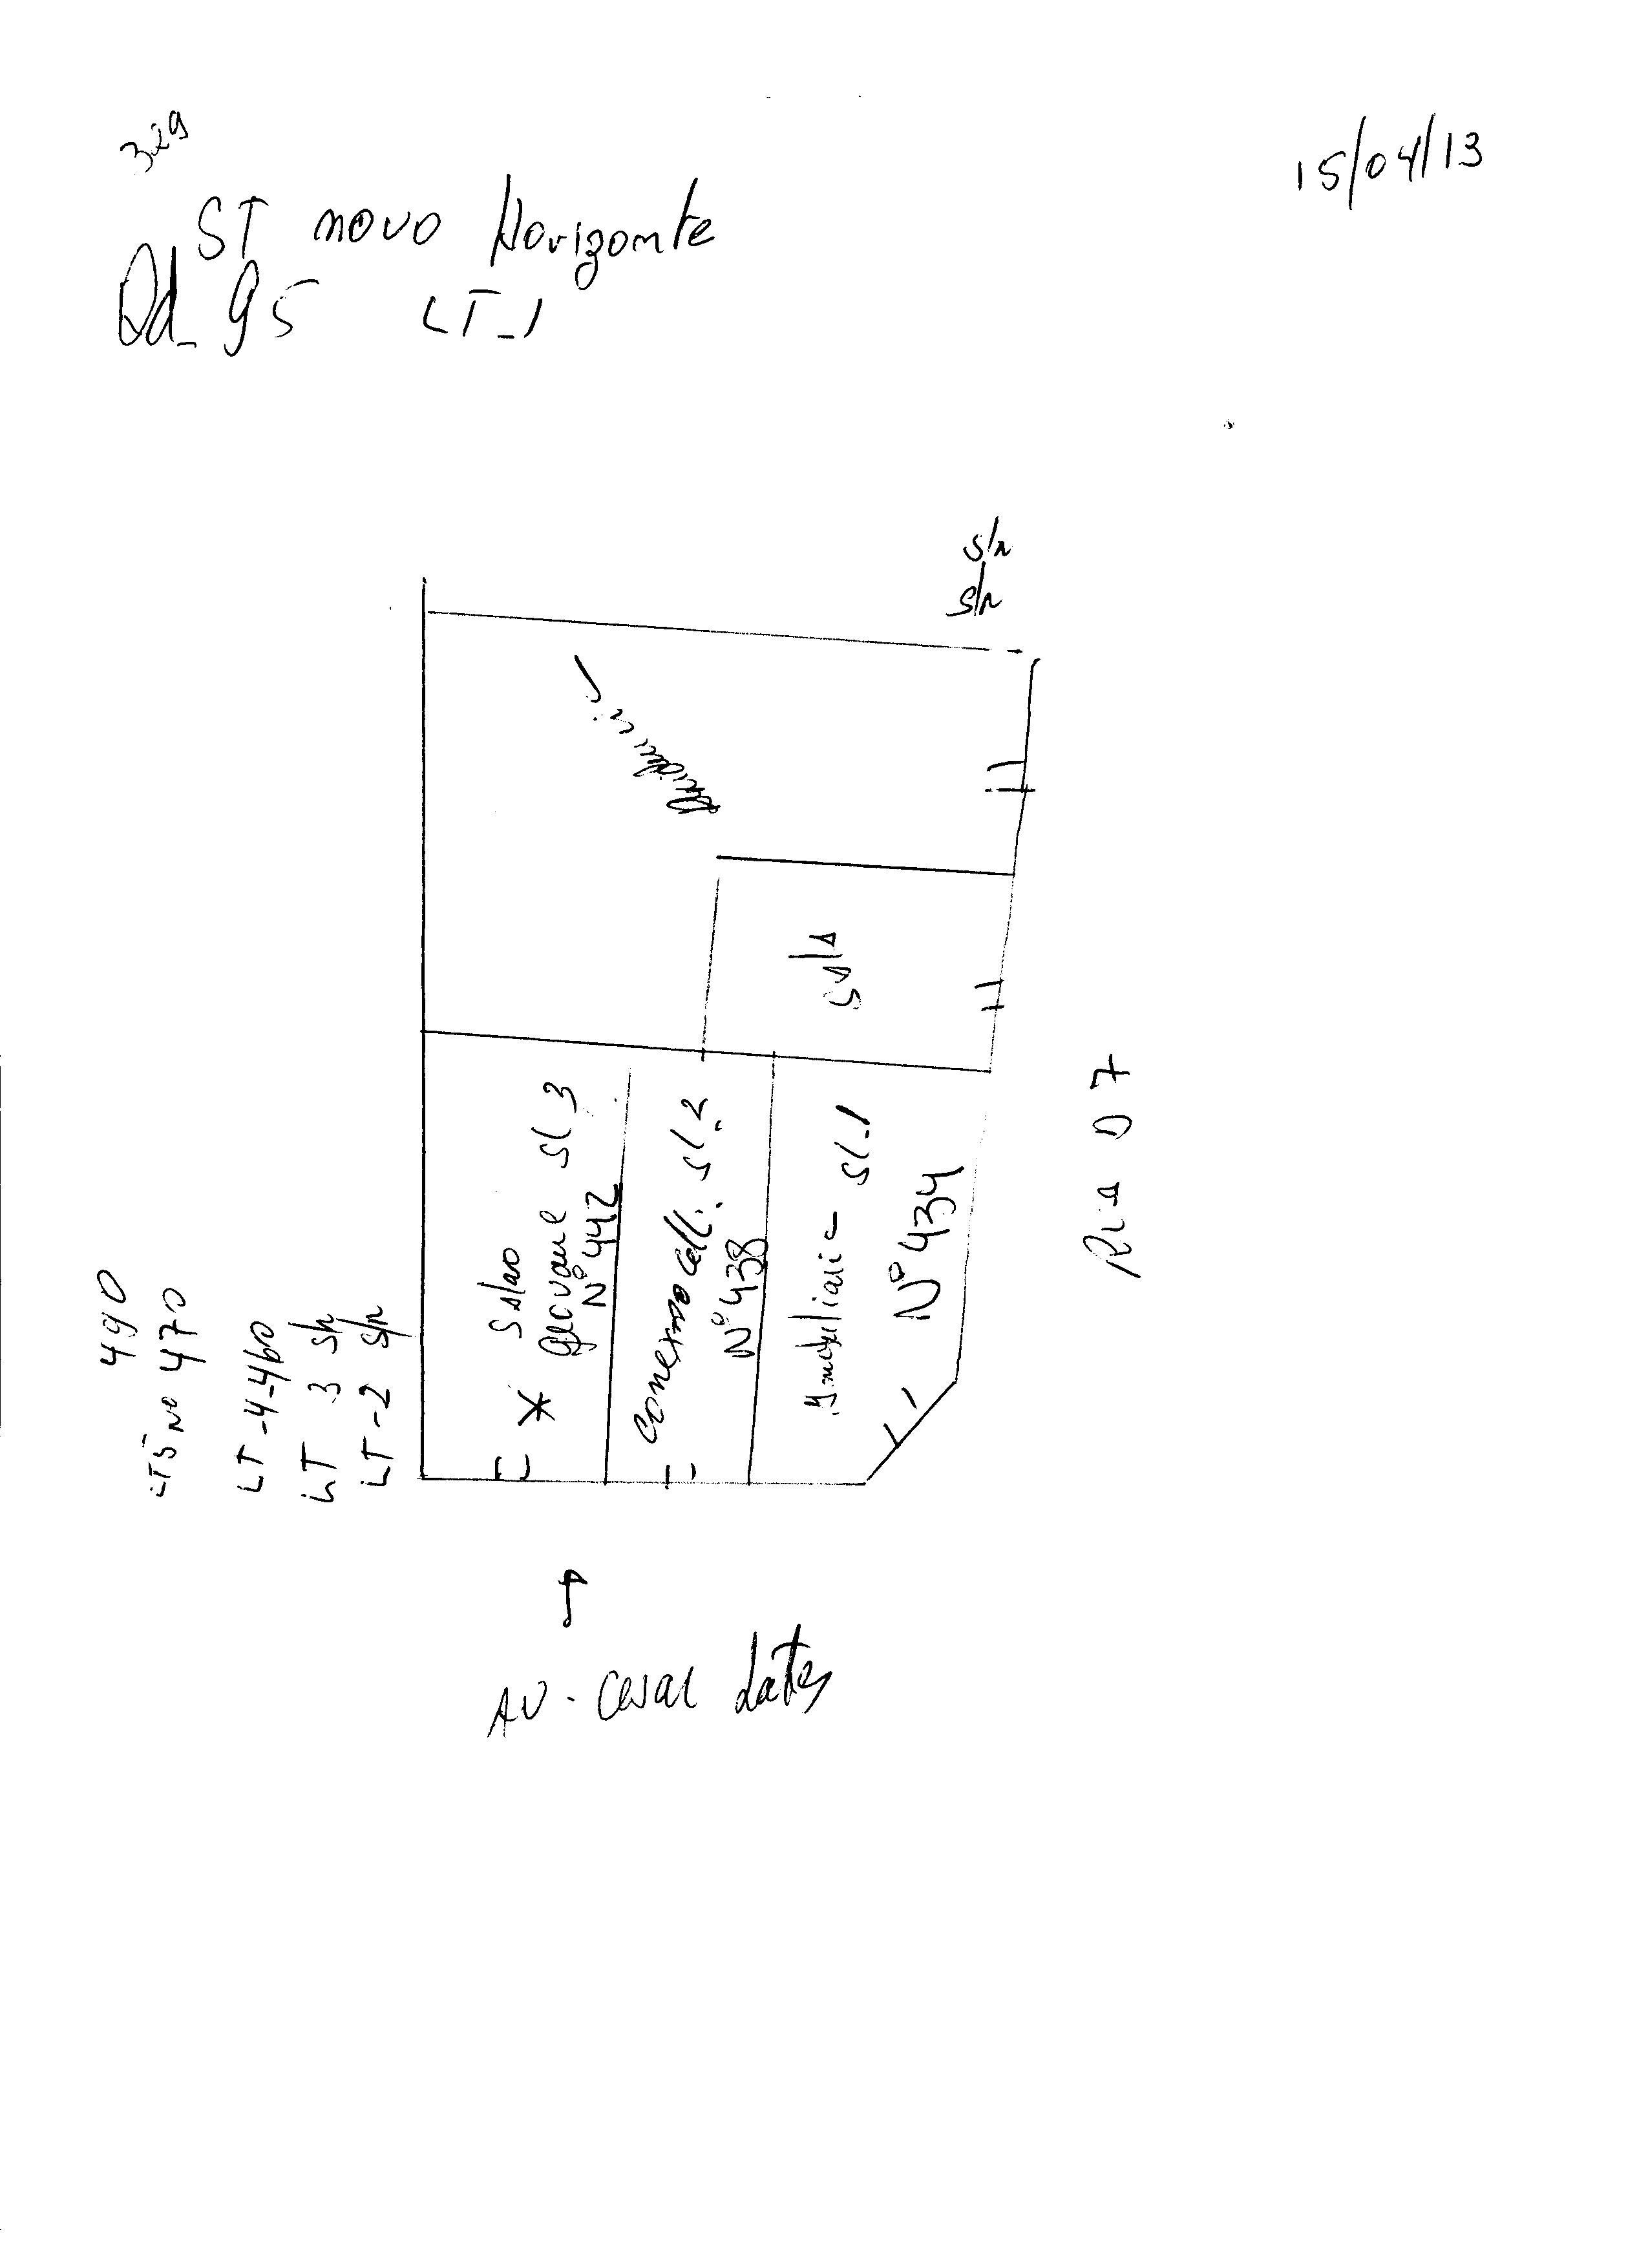 329
15/04/13
ST novo Horizonte
Qd_ 95 LT_1
s/n
s/n
Residencia
Sala
Salao
geovane SL 3
Nº 442
conexao cell. SL_2
Nº 438
Imobiliaria - SL_1
Nº 434
Rua 07
490
LT5 Nº 470
LT-4-460
LT 3 s/n
LT-2 s/n
AV. Cesar Lates